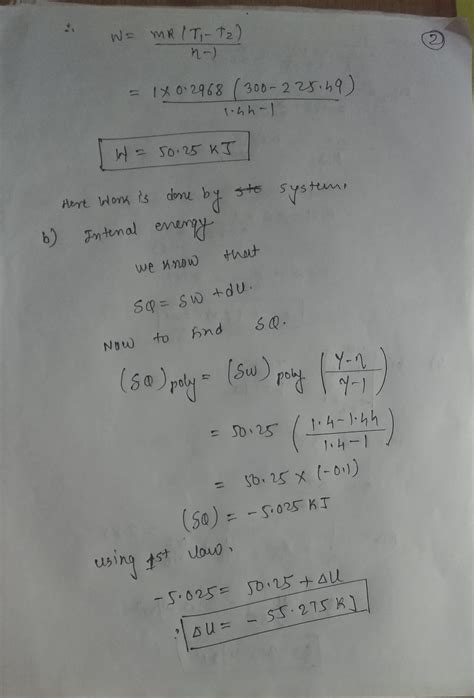 ∴ W = mR (T1 - T2) / n-1
②
= 1 x 0.2968 (300 - 225.49) / 1.44 - 1
W = 50.25 KJ
Here Work is done by system.
b) Intenal energy
we know that
SQ = SW + dU.
Now to find SQ.
(SQ)poly = (SW)poly (γ-n / γ-1)
= 50.25 (1.4 - 1.44 / 1.4 - 1)
= 50.25 x (-0.1)
(SQ) = -5.025 KJ
using 1st law,
-5.025 = 50.25 + ΔU
∴ ΔU = -55.275 KJ